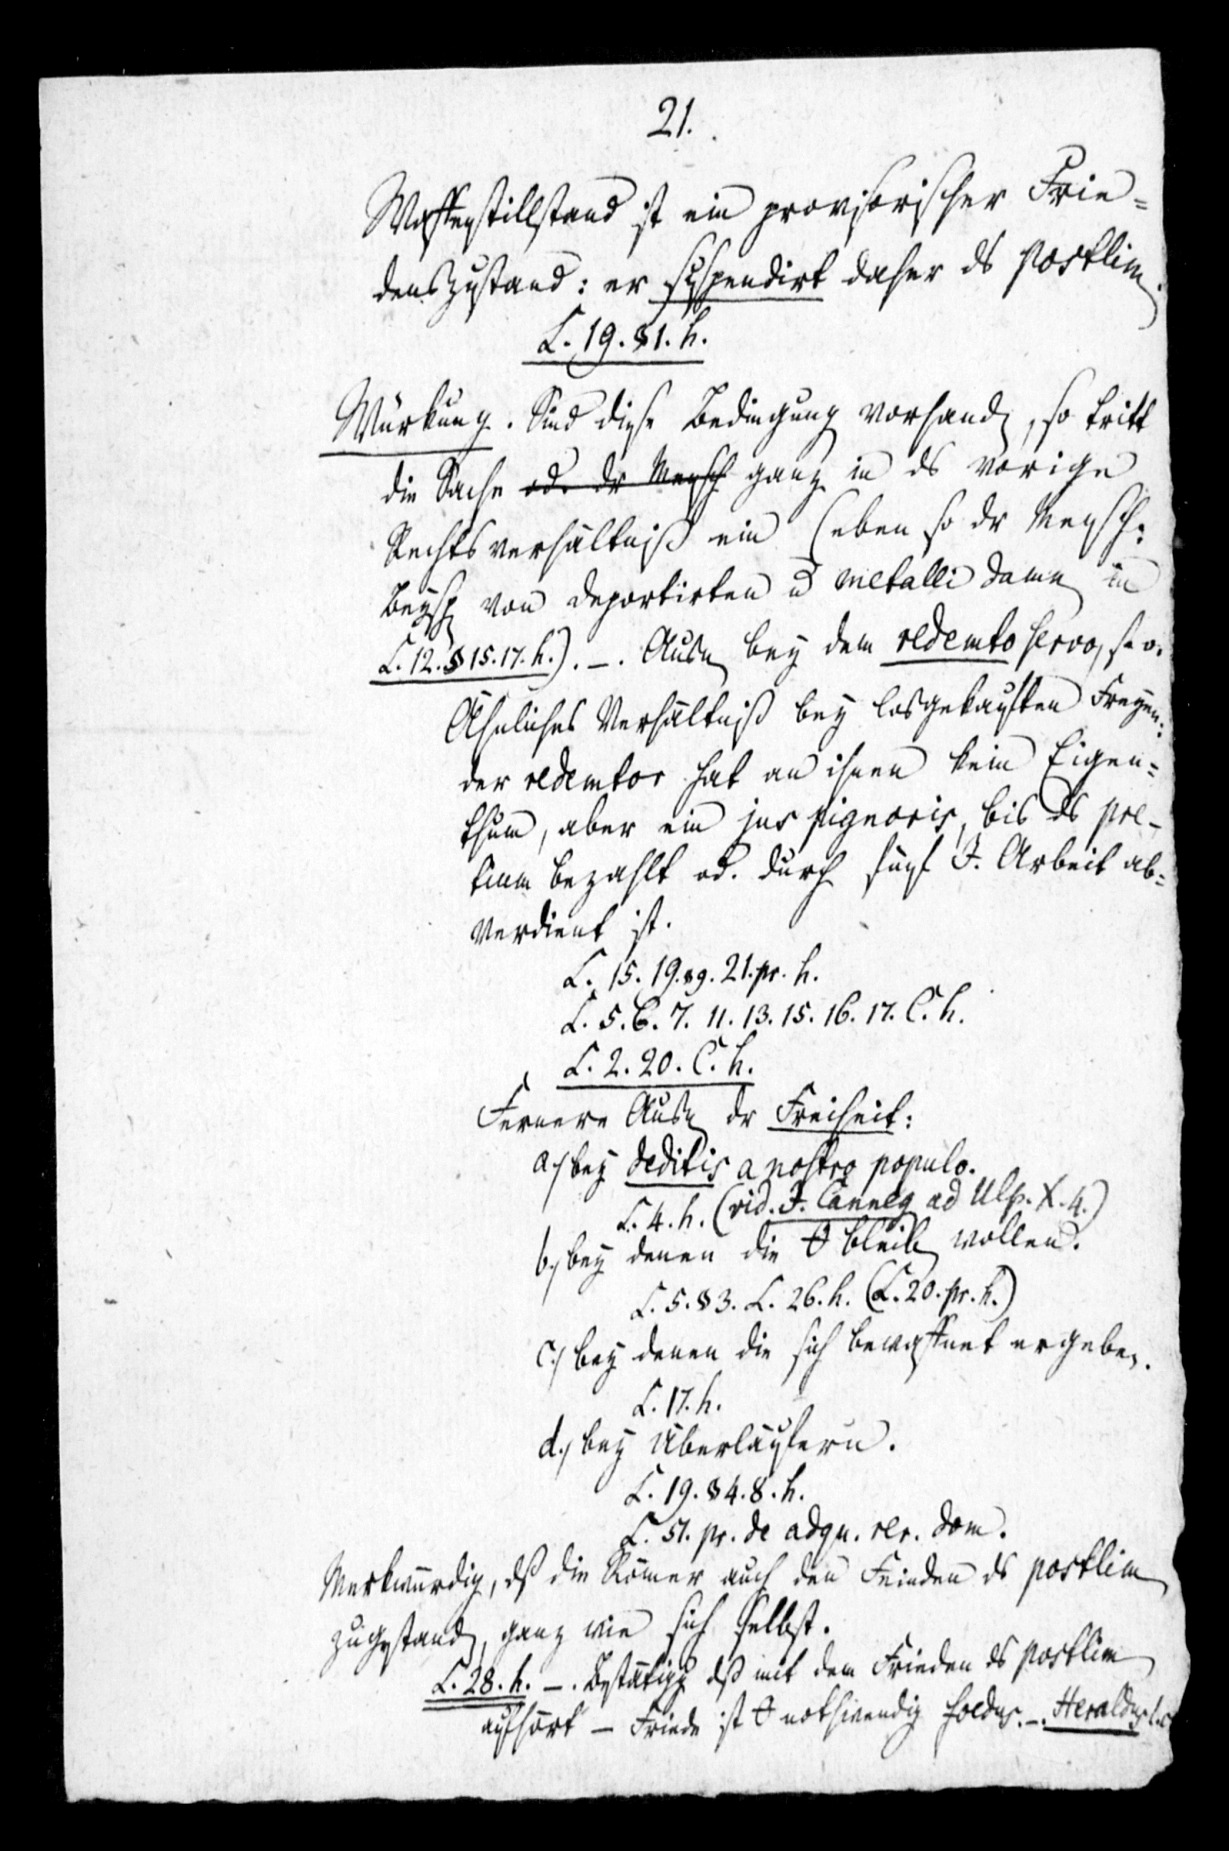 21.
Waffenstillstand ist ein provisorischer Frie=
denszustand: er suspendirt daher ds postlim.
L. 19. §1. h.
Würkung. Sind diese Bedingung vorhand, so tritt
die Sache od. dr Mensch ganz in ds vorige
Rechtsverhältniß ein (eben so dr Mensch:
Beysp von deportirten u metalli damn in
L. 12. §15. 17. h.). —. Ausn bey dem redemto servo, s. o.
Ähnliches Verhältniß bey losgekauften Freyen:
der redemtor hat an ihnen kein Eigen=
thum, aber ein jus pignoris, bis ds pre-
tium bezahlt od. durch fünf J. Arbeit ab=
verdient ist.
L. 15. 19. §9. 21. pr. h.
L. 5. 6. 7. 11. 13. 15. 16. 17. C. h.
L. 2. 20. C. h.
Fernere Ausn dr Freiheit:
a.) bey deditis a nostro populo.
L. 4. h. (vid. J. Canneg ad Ulp. X. 4.)
b.) bey denen die bleib wollen.
L. 5. §3. L. 26. h. (L. 20. pr. h.)
c.) bey denen die sich bewaffnet ergeben.
L. 17. h.
d.) bey Überläufern.
L. 19. §4. 8. h.
L. 51. pr. de adqu. rer. dom.
Merkwürdig, dß die Römer auch den Feinden ds postlim
zugestand, ganz wie sich selbst.
L. 28. h. —. Bestätigg dß mit dem Frieden ds postlim
aufhört — Friede ist nothwendig foedus. —. Heraldus l. c